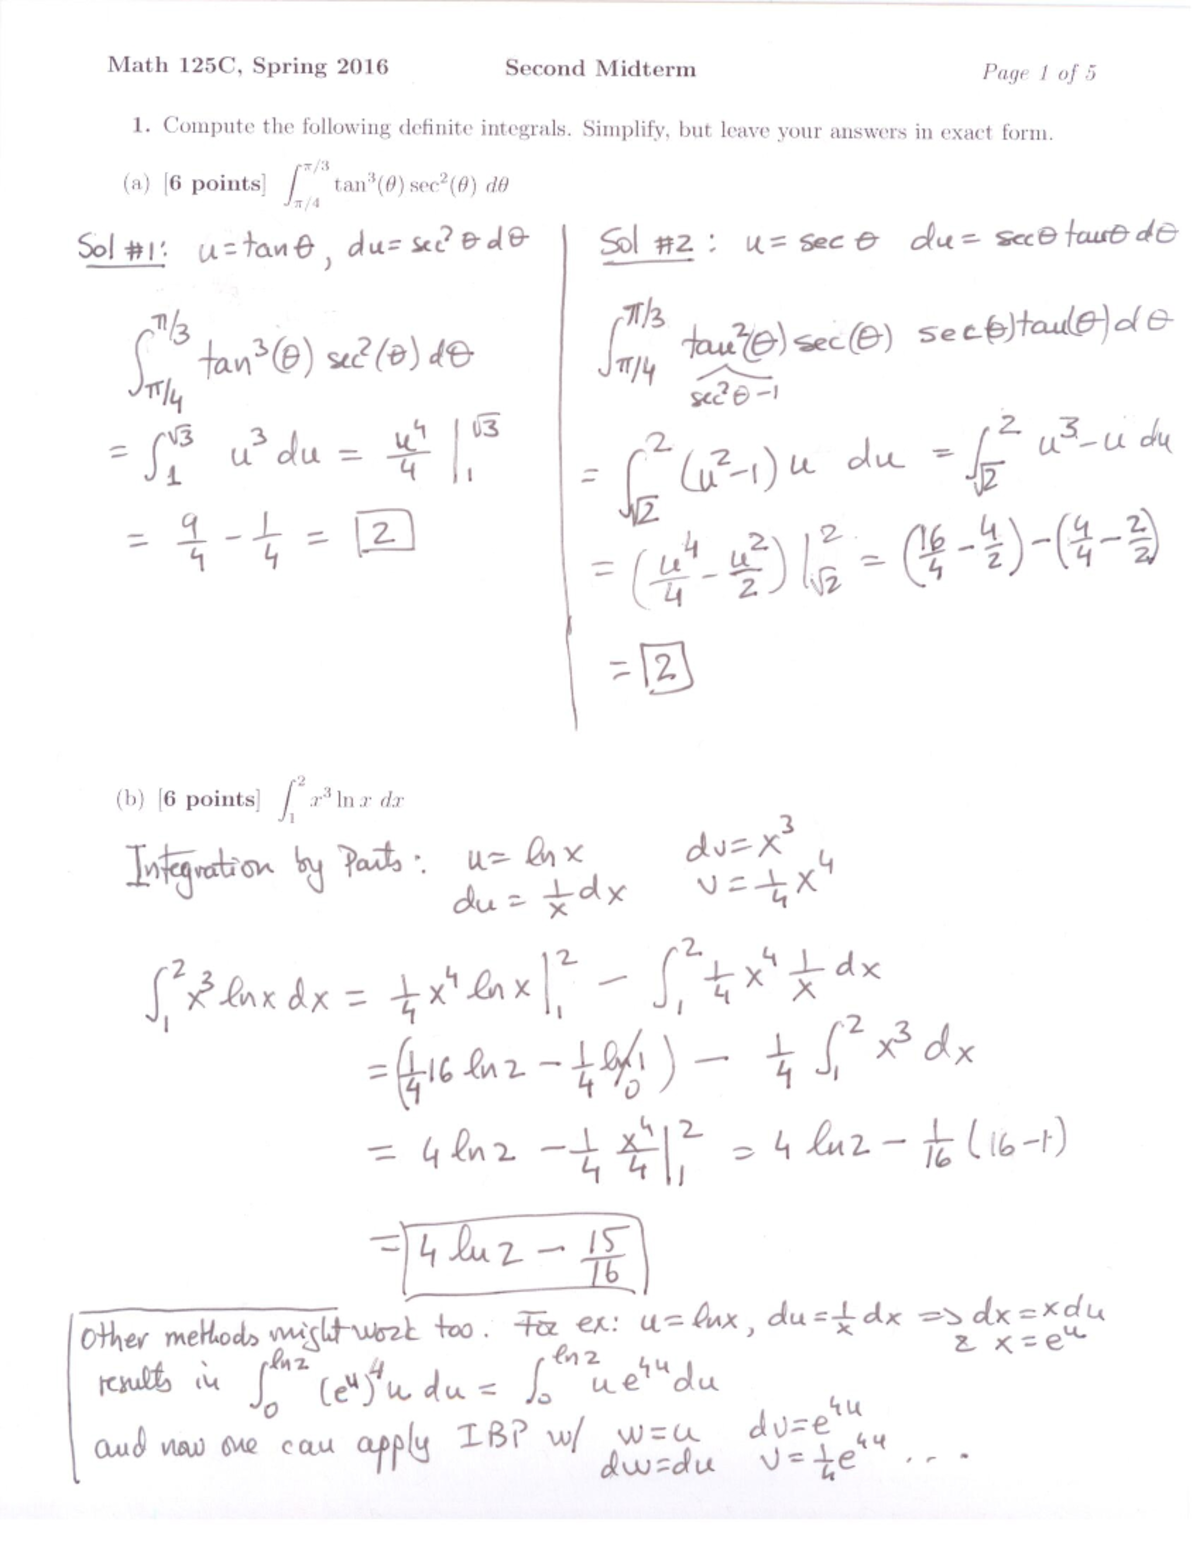 Math 125C, Spring 2016 Second Midterm Page 1 of 5
1. Compute the following definite integrals. Simplify, but leave your answers in exact form.
(a) [6 points] ∫_{π/4}^{π/3} tan³(θ) sec²(θ) dθ
Sol #1: u = tan θ, du = sec² θ dθ
∫_{π/4}^{π/3} tan³(θ) sec²(θ) dθ
= ∫_1^{√3} u³ du = u⁴/4 |_1^{√3}
= 9/4 - 1/4 = 2
Sol #2: u = sec θ du = secθ tanθ dθ
∫_{π/4}^{π/3} tan²(θ) sec(θ) sec(θ) tan(θ) dθ
sec²θ-1
= ∫_{√2}^2 (u²-1) u du = ∫_{√2}^2 u³-u du
= (u⁴/4 - u²/2) |_{√2}^2 = (16/4 - 4/2) - (4/4 - 2/2)
= 2
(b) [6 points] ∫_1^2 x³ ln x dx
Integration by Parts: u = ln x dv = x³
du = 1/x dx v = 1/4 x⁴
∫_1^2 x³ ln x dx = 1/4 x⁴ ln x |_1^2 - ∫_1^2 1/4 x⁴ 1/x dx
= (1/4 16 ln 2 - 1/4 ln 1 0) - 1/4 ∫_1^2 x³ dx
= 4 ln 2 - 1/4 x⁴/4 |_1^2 = 4 ln 2 - 1/16 (16-1)
= 4 ln 2 - 15/16
Other methods might work too. For ex: u = ln x, du = 1/x dx => dx = x du
& x = e^u
results in ∫_0^{ln 2} (e^u)⁴ u du = ∫_0^{ln 2} u e^{4u} du
and now one can apply IBP w/ w = u dv = e^{4u}
dw = du v = 1/4 e^{4u} ....